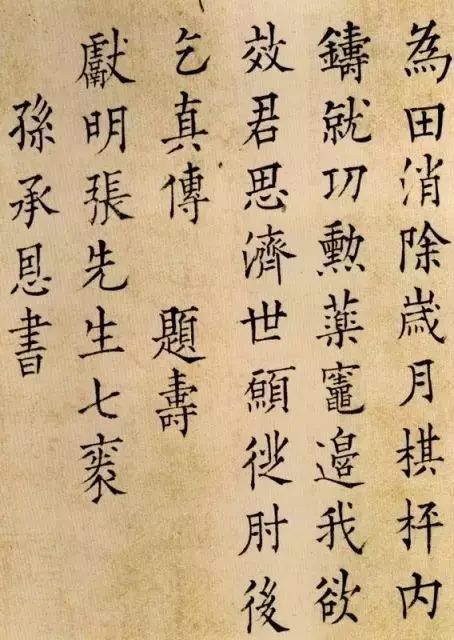 為田消除歳月棋枰内
鑄就功勲藥竈邉我欲
效君思濟世願從肘後
乞真傳 題壽
獻明張先生七袠
孫承恩書